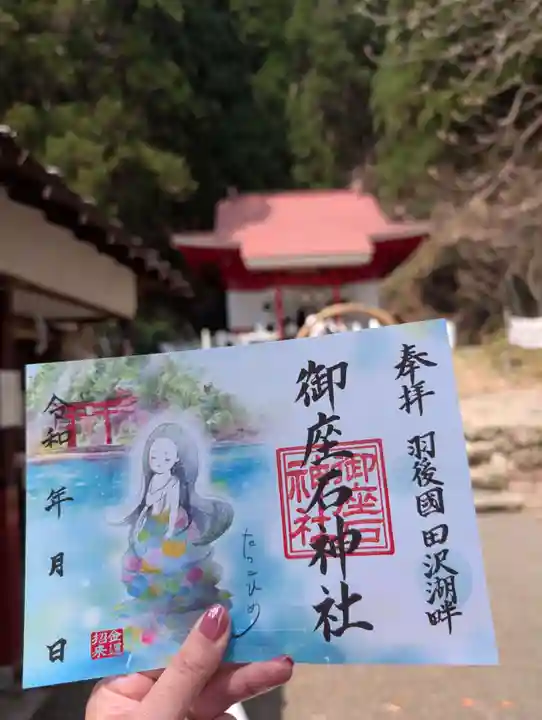 奉拝 羽後國田沢湖畔
御座石神社
御座石神社
たつこひめ
令和 年 月 日
金運招来